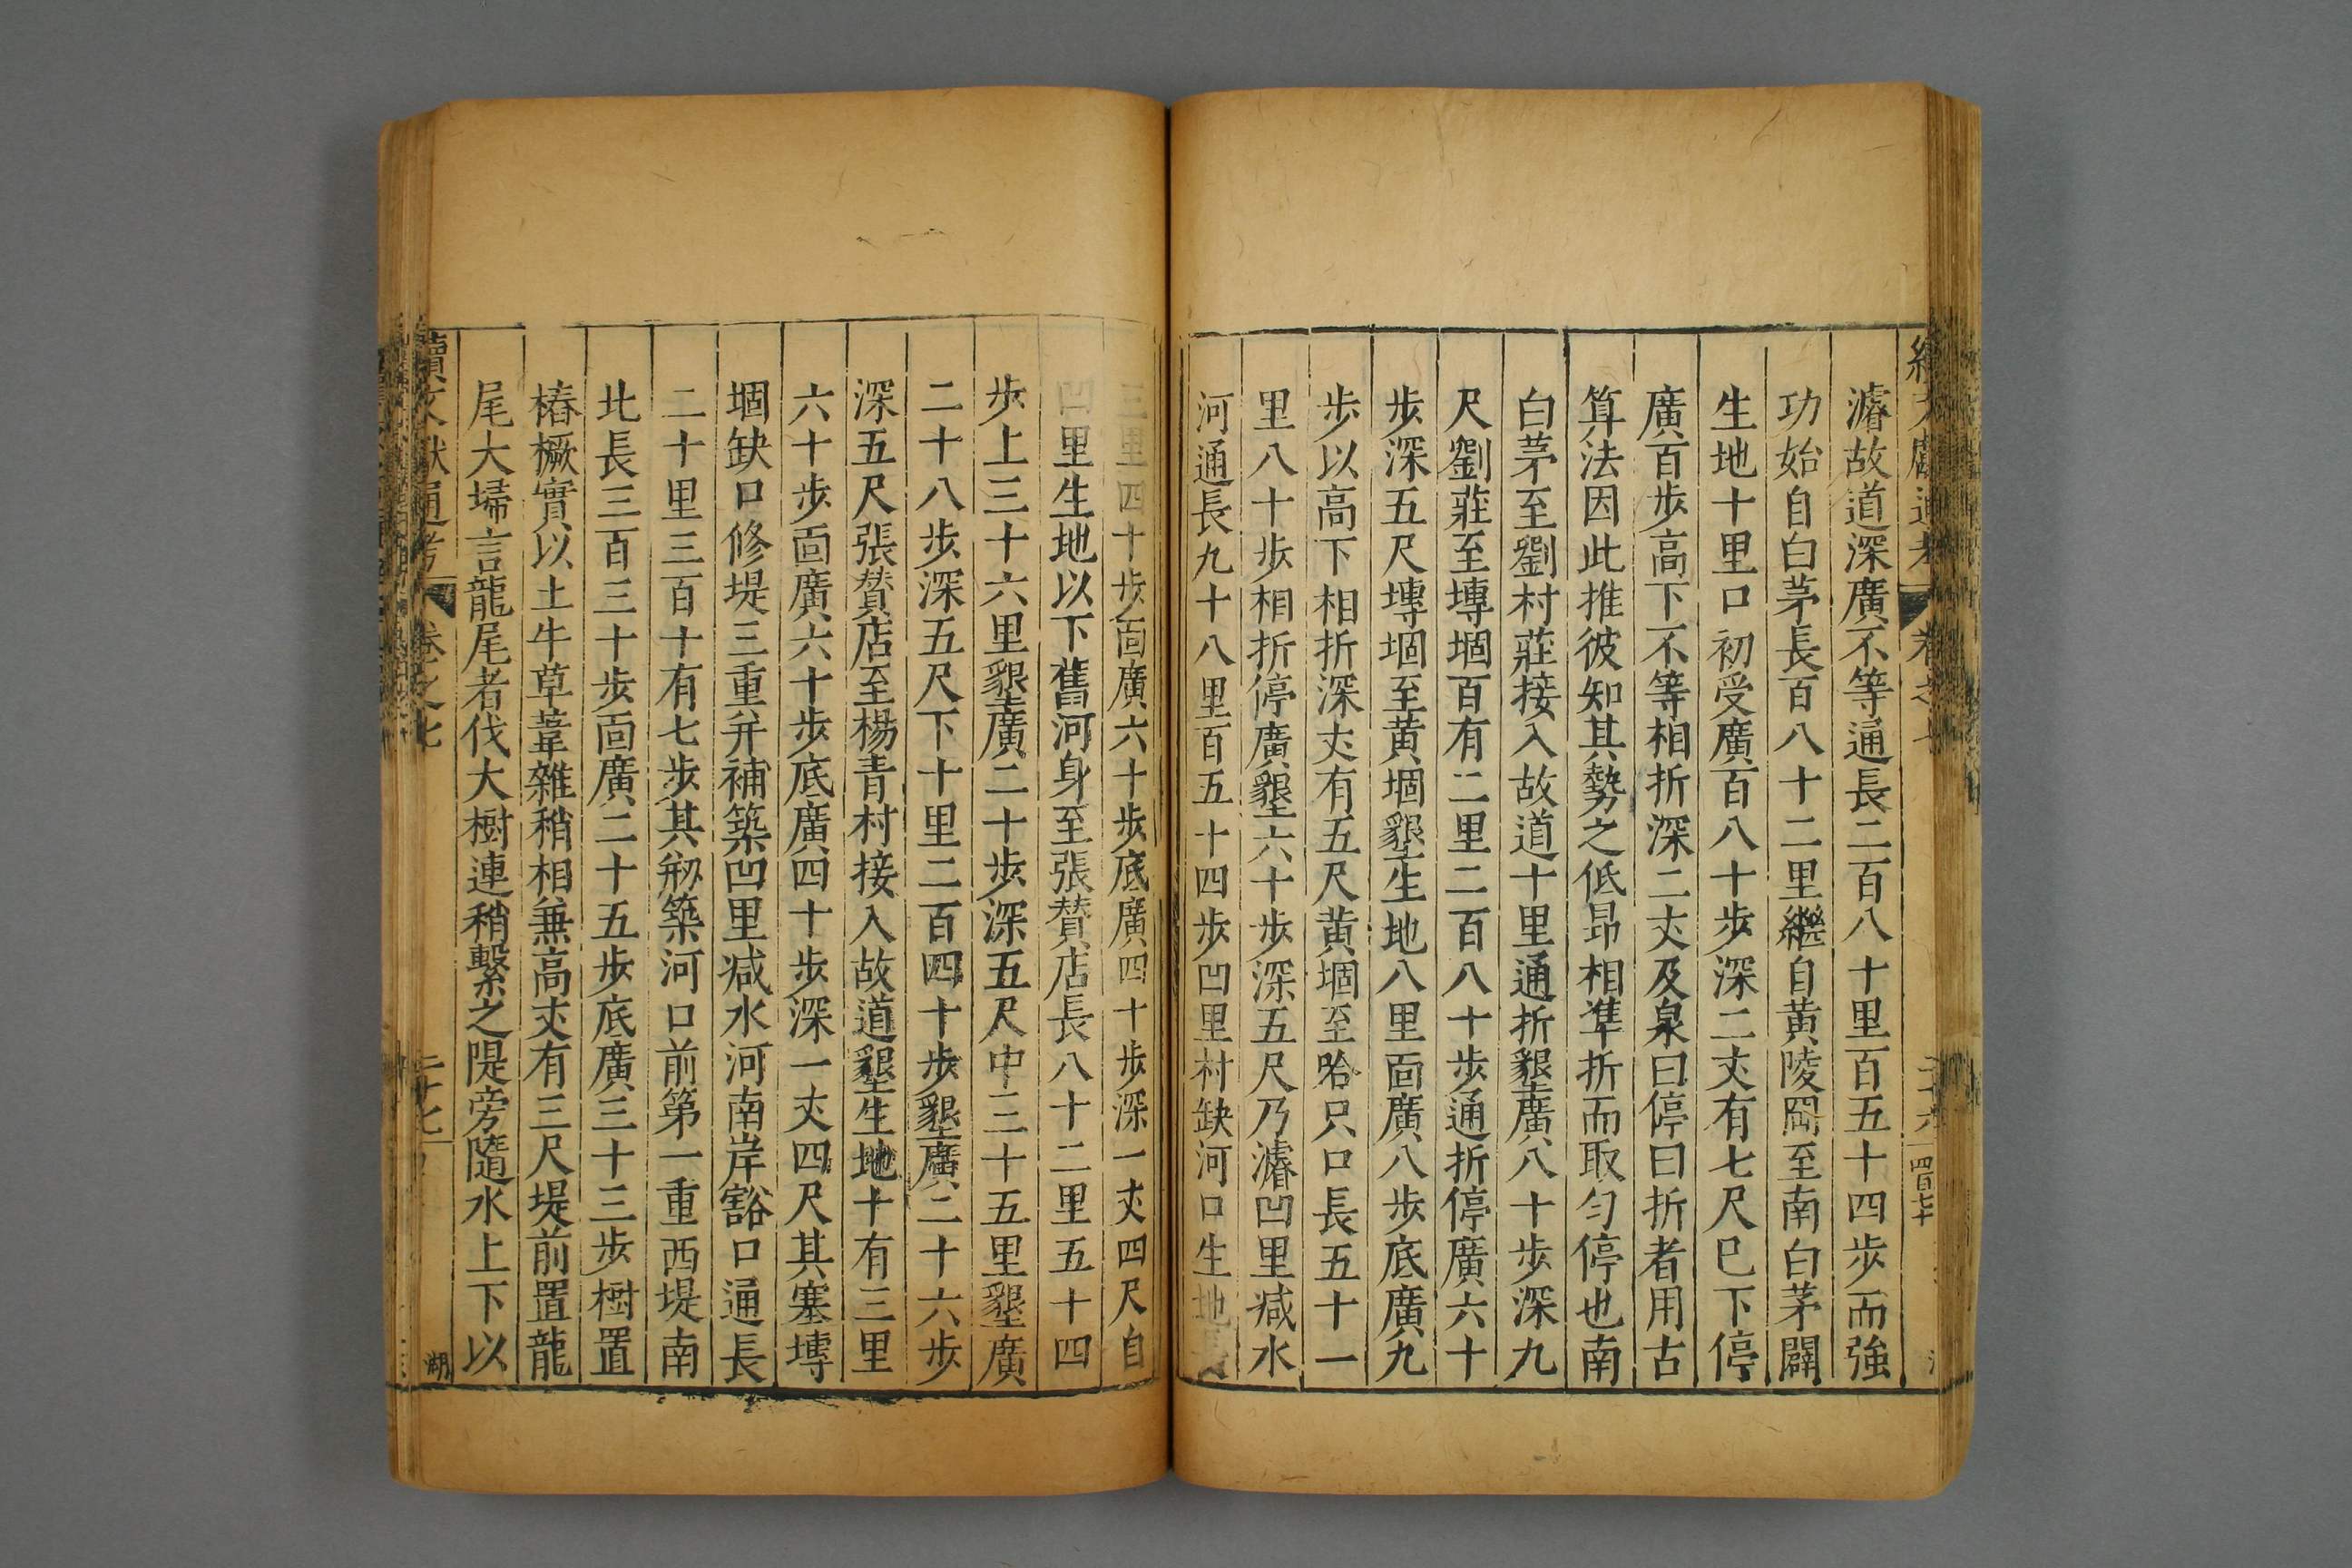 濬故道深廣不等通長二百八十里百五十四步而強
功始自白茅長百八十二里繼自黃陵岡至南白茅闢
生地十里口初受廣百八十步深二丈有七尺巳下停
廣百步高下不等相折深二丈及泉曰停曰折者用古
算法因此推彼知其勢之低昻相準折而取勻停也南
白茅至劉村莊接入故道十里通折墾廣八十步深九
尺劉莊至塼堌百有二里二百八十步通折停廣六十
步深五尺塼堌至黃堌墾生地八里面廣八步底廣九
步以高下相折深丈有五尺黃堌至哈只口長五十一
里八十步相折停廣墾六十步深五尺乃濬凹里减水
河通長九十八里百五十四步凹里村缺河口生地長
三里四十步面廣六十步底廣四十步深一丈四尺自
凹里生地以下舊河身至張贊店長八十二里五十四
步上三十六里墾廣二十步深五尺中三十五里墾廣
二十八步深五尺下十里二百四十步墾廣二十六步
深五尺張贊店至楊青村接入故道墾生地十有三里
六十步面廣六十步底廣四十步深一丈四尺其塞塼
堌缺口修堤三重并補築凹里减水河南岸豁口通長
二十里三百十有七步其剏築河口前第一重西堤南
北長三百三十步面廣二十五步底廣三十三步樹置
樁橛實以土牛草葦雜稍相兼高丈有三尺堤前置龍
尾大埽言龍尾者伐大樹連稍繫之隄旁隨水上下以
續文獻通考 卷之七 二十七 湖